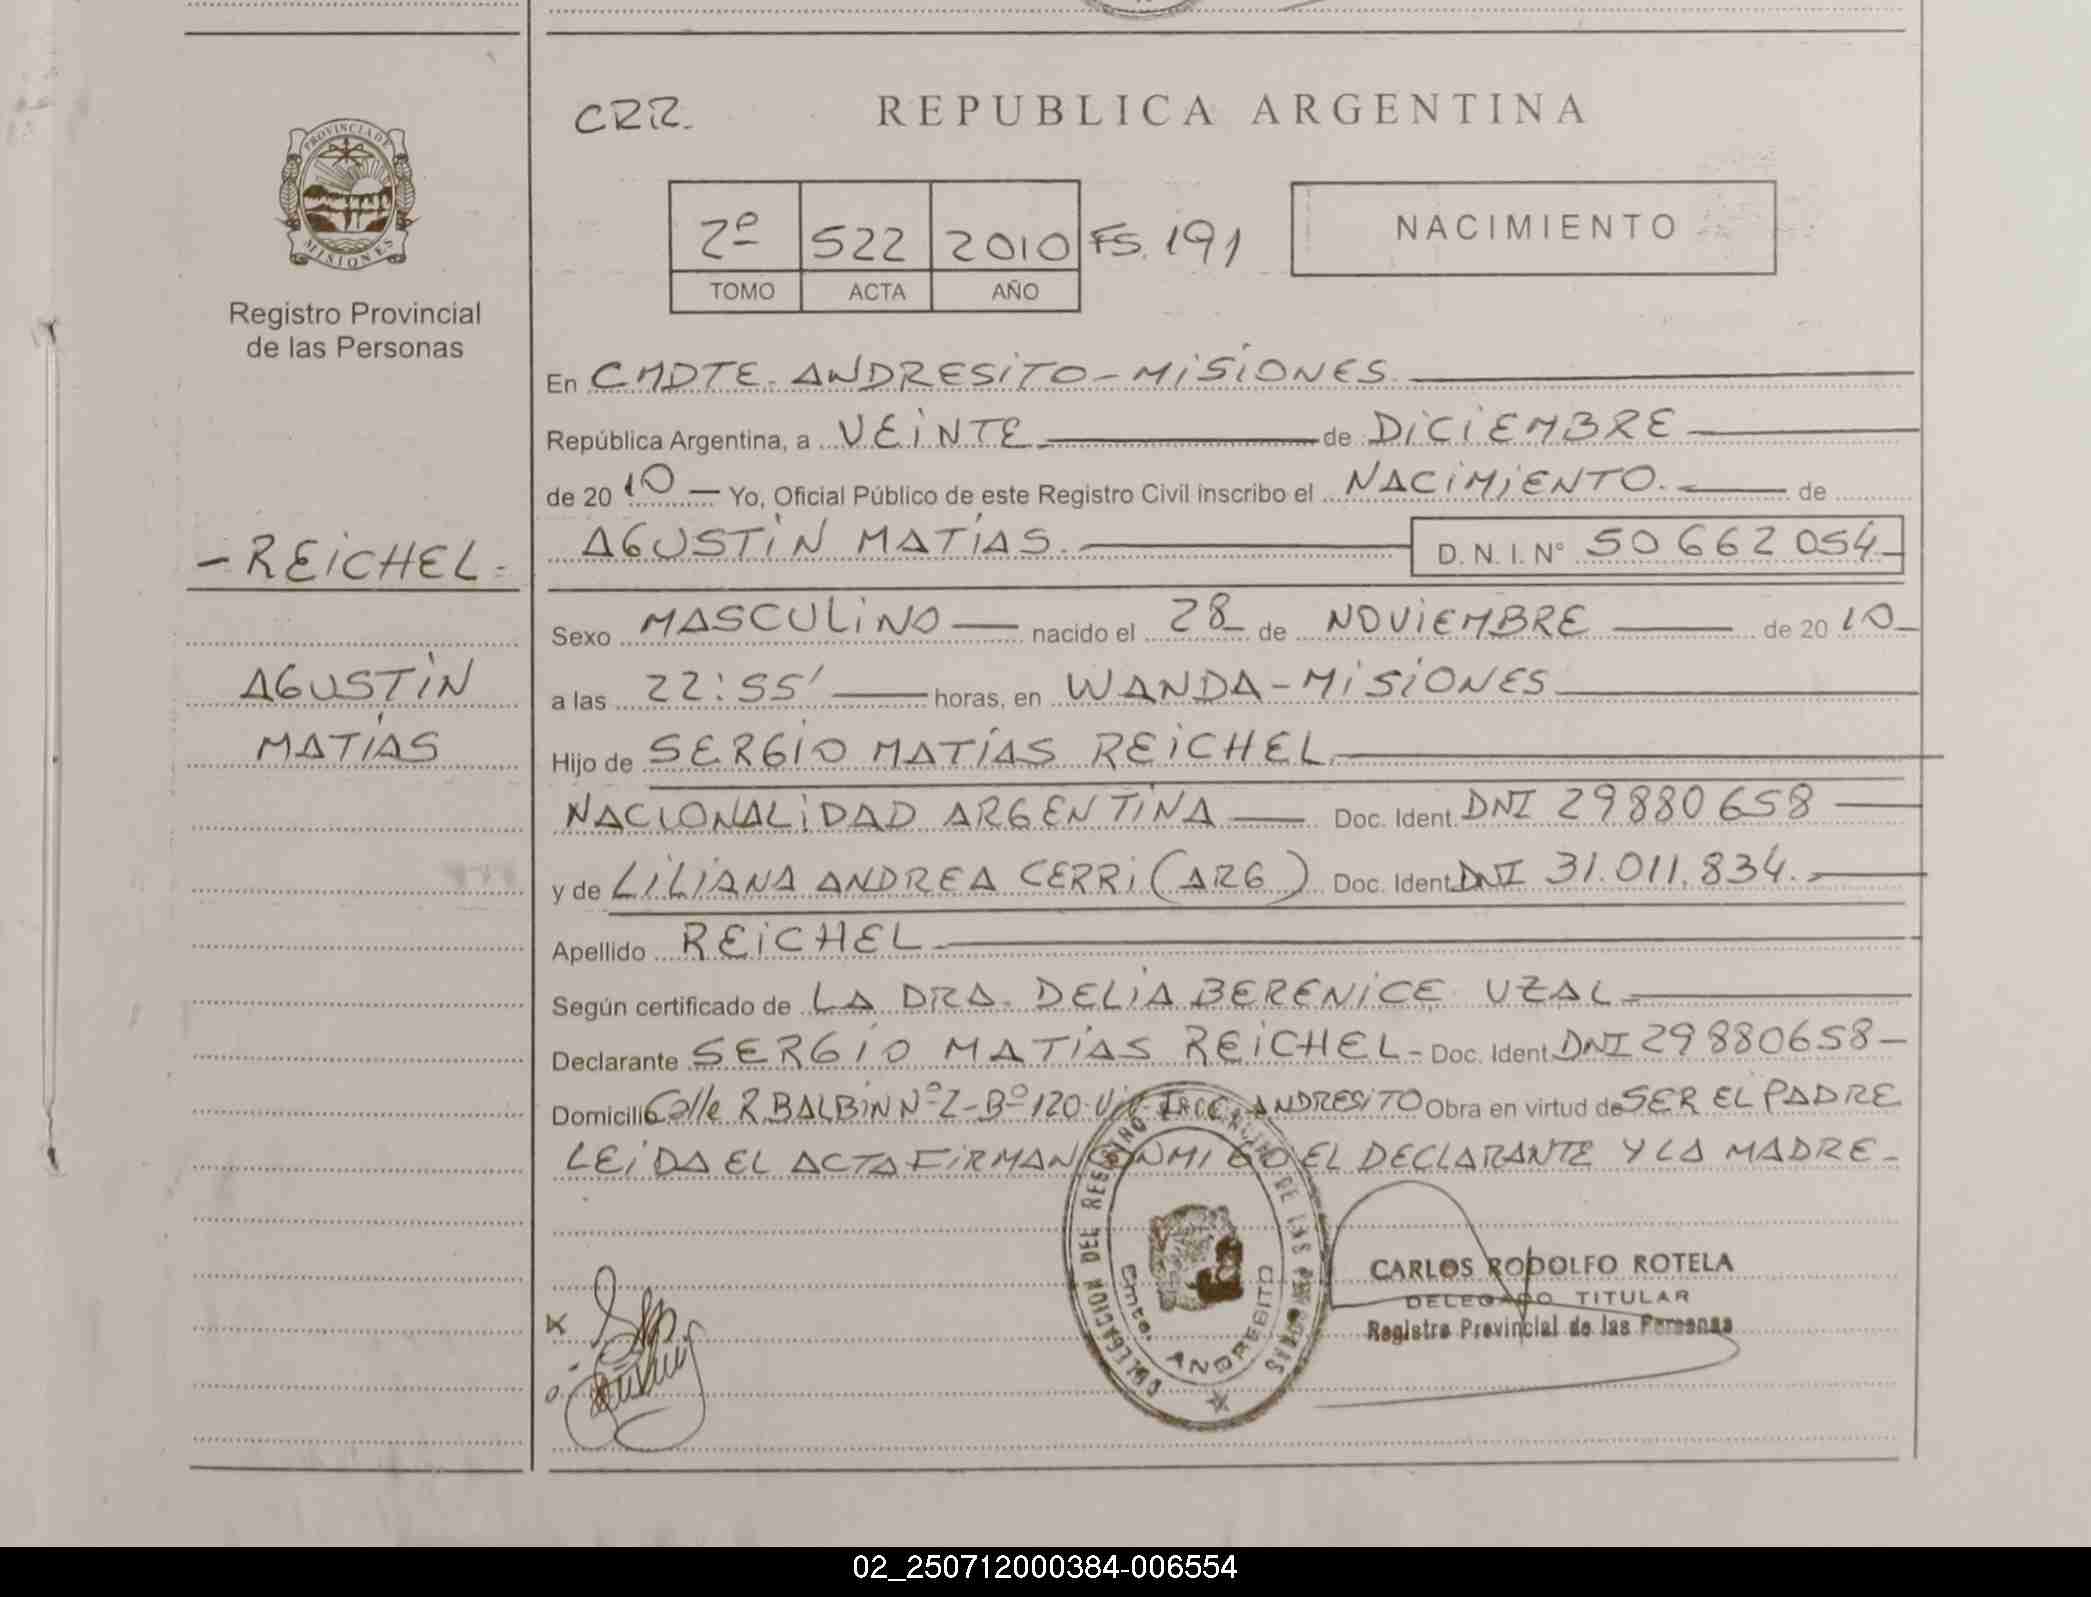 CRR.
REPUBLICA ARGENTINA
PROVINCIA DE
MISIONES
Registro Provincial
de las Personas
2º 522 2010 FS. 191
TOMO ACTA AÑO
NACIMIENTO
En CMDTE. ANDRESITO - MISIONES
República Argentina, a VEINTE de DICIEMBRE
de 2010 Yo, Oficial Público de este Registro Civil inscribo el NACIMIENTO. de
AGUSTIN MATÍAS. D. N. I. Nº 50 662 054
- REICHEL =
Sexo MASCULINO nacido el 28 de NOVIEMBRE de 2010
AGUSTIN
a las 22:55' horas, en WANDA - MISIONES
MATÍAS
Hijo de SERGIO MATÍAS REICHEL
NACIONALIDAD ARGENTINA Doc. Ident. DNI 29880658
y de LILIANA ANDREA CERRI (ARG) Doc. Ident. DNI 31.011.834.
Apellido REICHEL
Según certificado de LA DRA. DELIA BERENICE UZAL
Declarante SERGIO MATÍAS REICHEL - Doc. Ident. DNI 29880658
Domicilio Calle R. BALBIN Nº 2 - Bº 120 Viv. ANDRESITO Obra en virtud de SER EL PADRE
LEIDA EL ACTA FIRMAN CONMIGO EL DECLARANTE Y LA MADRE -
DELEGACION DEL REGISTRO PROVINCIAL DE LAS PERSONAS
Cmte. ANDRESITO
CARLOS RODOLFO ROTELA
DELEGADO TITULAR
Registro Provincial de las Personas
02_250712000384-006554